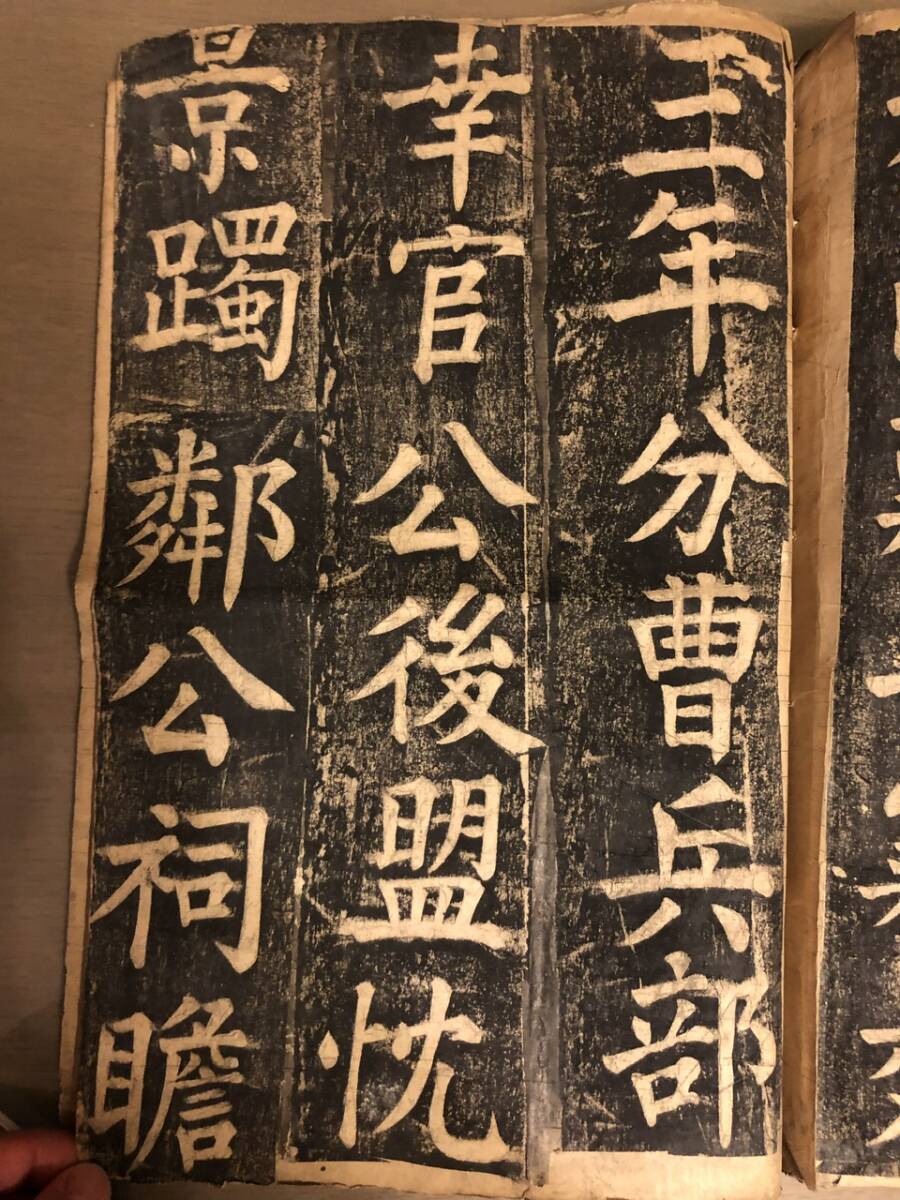 三年分曹兵部
幸官公後盟忱
景躅鄰公祠瞻